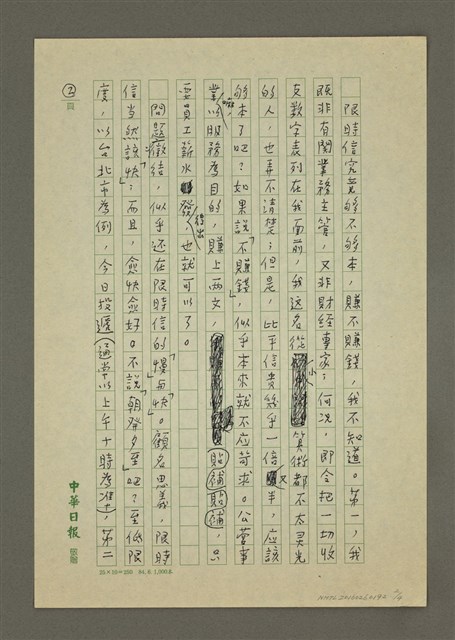 限時信究竟够不够本，賺不賺錢，我不知道。第一，我
既非有関業務主管，又非財経專家；何況，即令把一切收
支数字表列在我面前，我这名從小算術都不太灵光
的人，也弄不清楚；但是，比平信貴幾乎一倍又半，應該
够本了吧？如果說「不賺錢」，似乎本來就不应苛求。公营事
業嘛，以服務為目的，賺上两文，貼補貼補，只
要員工薪水發得出，也就可以了。
問題癥结，似乎还在限時信的「慢」與「快」。顧名思義，限時
信当然該「快」；而且，愈快愈好。不說「朝發夕至」吧？至低限
度，以台北市為例，今日投遞（通常以上午十時為准），第二
②
頁
中華日報
25×10=250 84.6. 1,000本
2/4